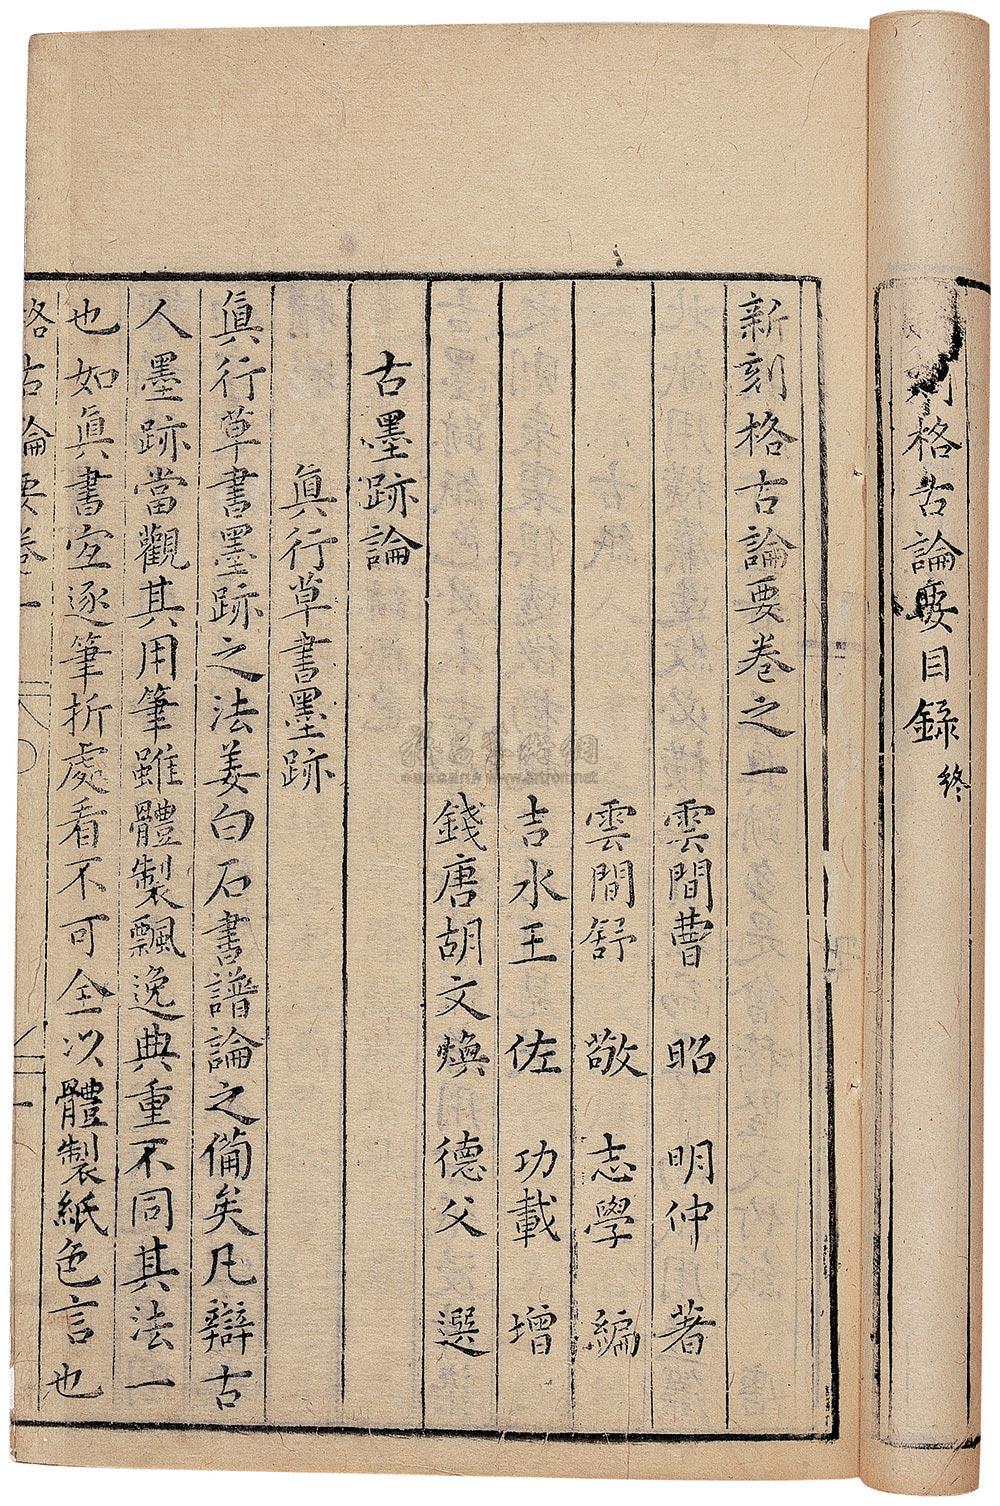 刻格古論要目錄終
新刻格古論要卷之一
雲間曹昭明仲著
雲間舒敬志學編
吉水王佐功載增
錢唐胡文煥德父選
古墨跡論
眞行草書墨跡
眞行草書墨跡之法姜白石書譜論之備矣凡辯古
人墨跡當觀其用筆雖體製飄逸典重不同其法一
也如眞書宜逐筆折處看不可全以體製紙色言也
格古論要卷一